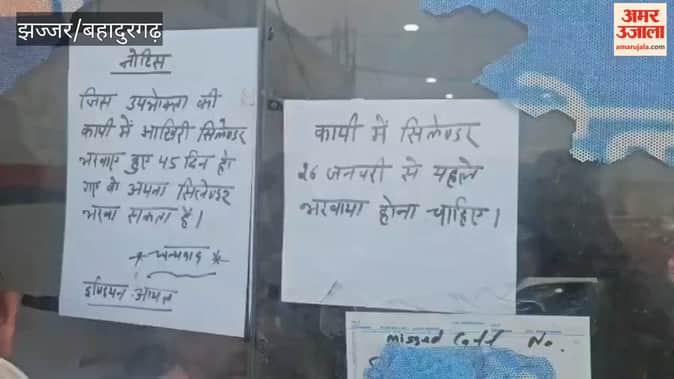 झज्जर/बहादुरगढ़
अमर
उजाला
amarujala.com
नोटिस
जिस उपभोक्ता की
कापी में आखिरी सिलेण्डर
भरवाए हुए 45 दिन हो
गए वो अपना सिलेण्डर
भरवा सकता है।
धन्यवाद
इण्डियन आयल
कापी में सिलेण्डर
26 जनवरी से पहले
भरवाया होना चाहिए।
missed Call No.